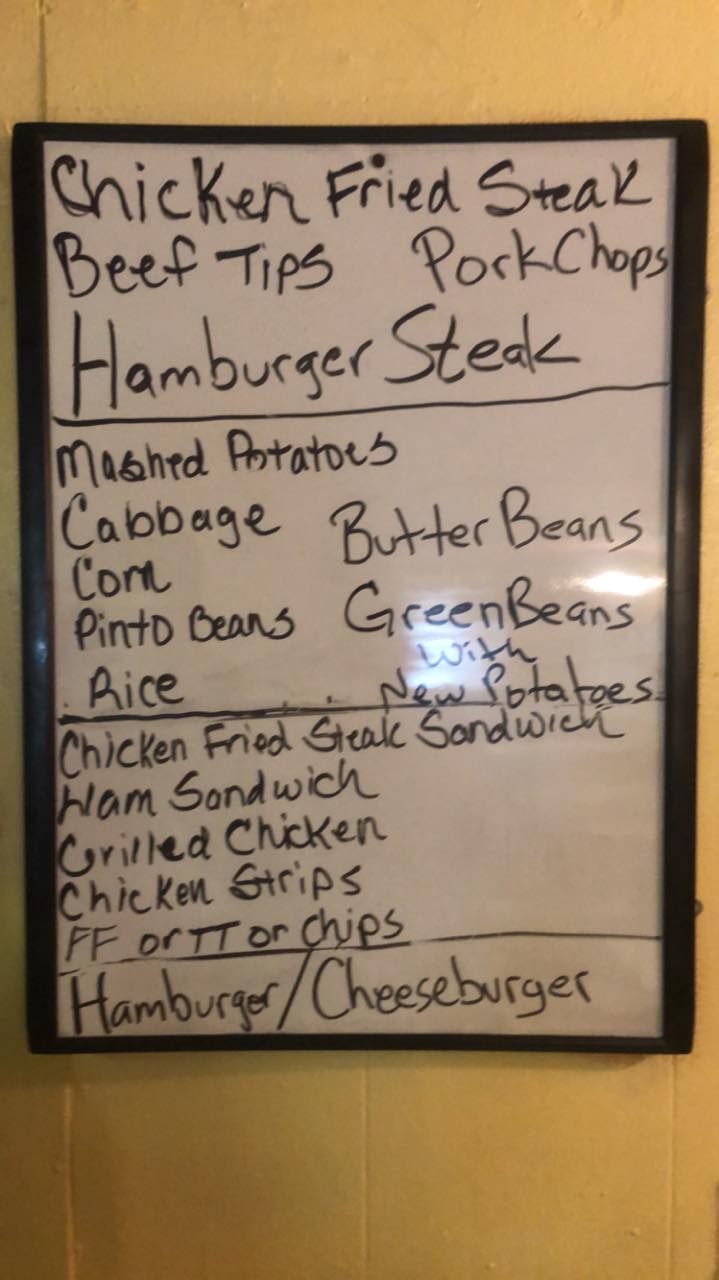 Chicken Fried Steak
Beef Tips Pork Chops
Hamburger Steak
Mashed Potatoes
Cabbage Butter Beans
Corn
Pinto Beans Green Beans
with
Rice New Potatoes
Chicken Fried Steak Sandwich
Ham Sandwich
Grilled Chicken
Chicken Strips
FF or TT or Chips
Hamburger/Cheeseburger